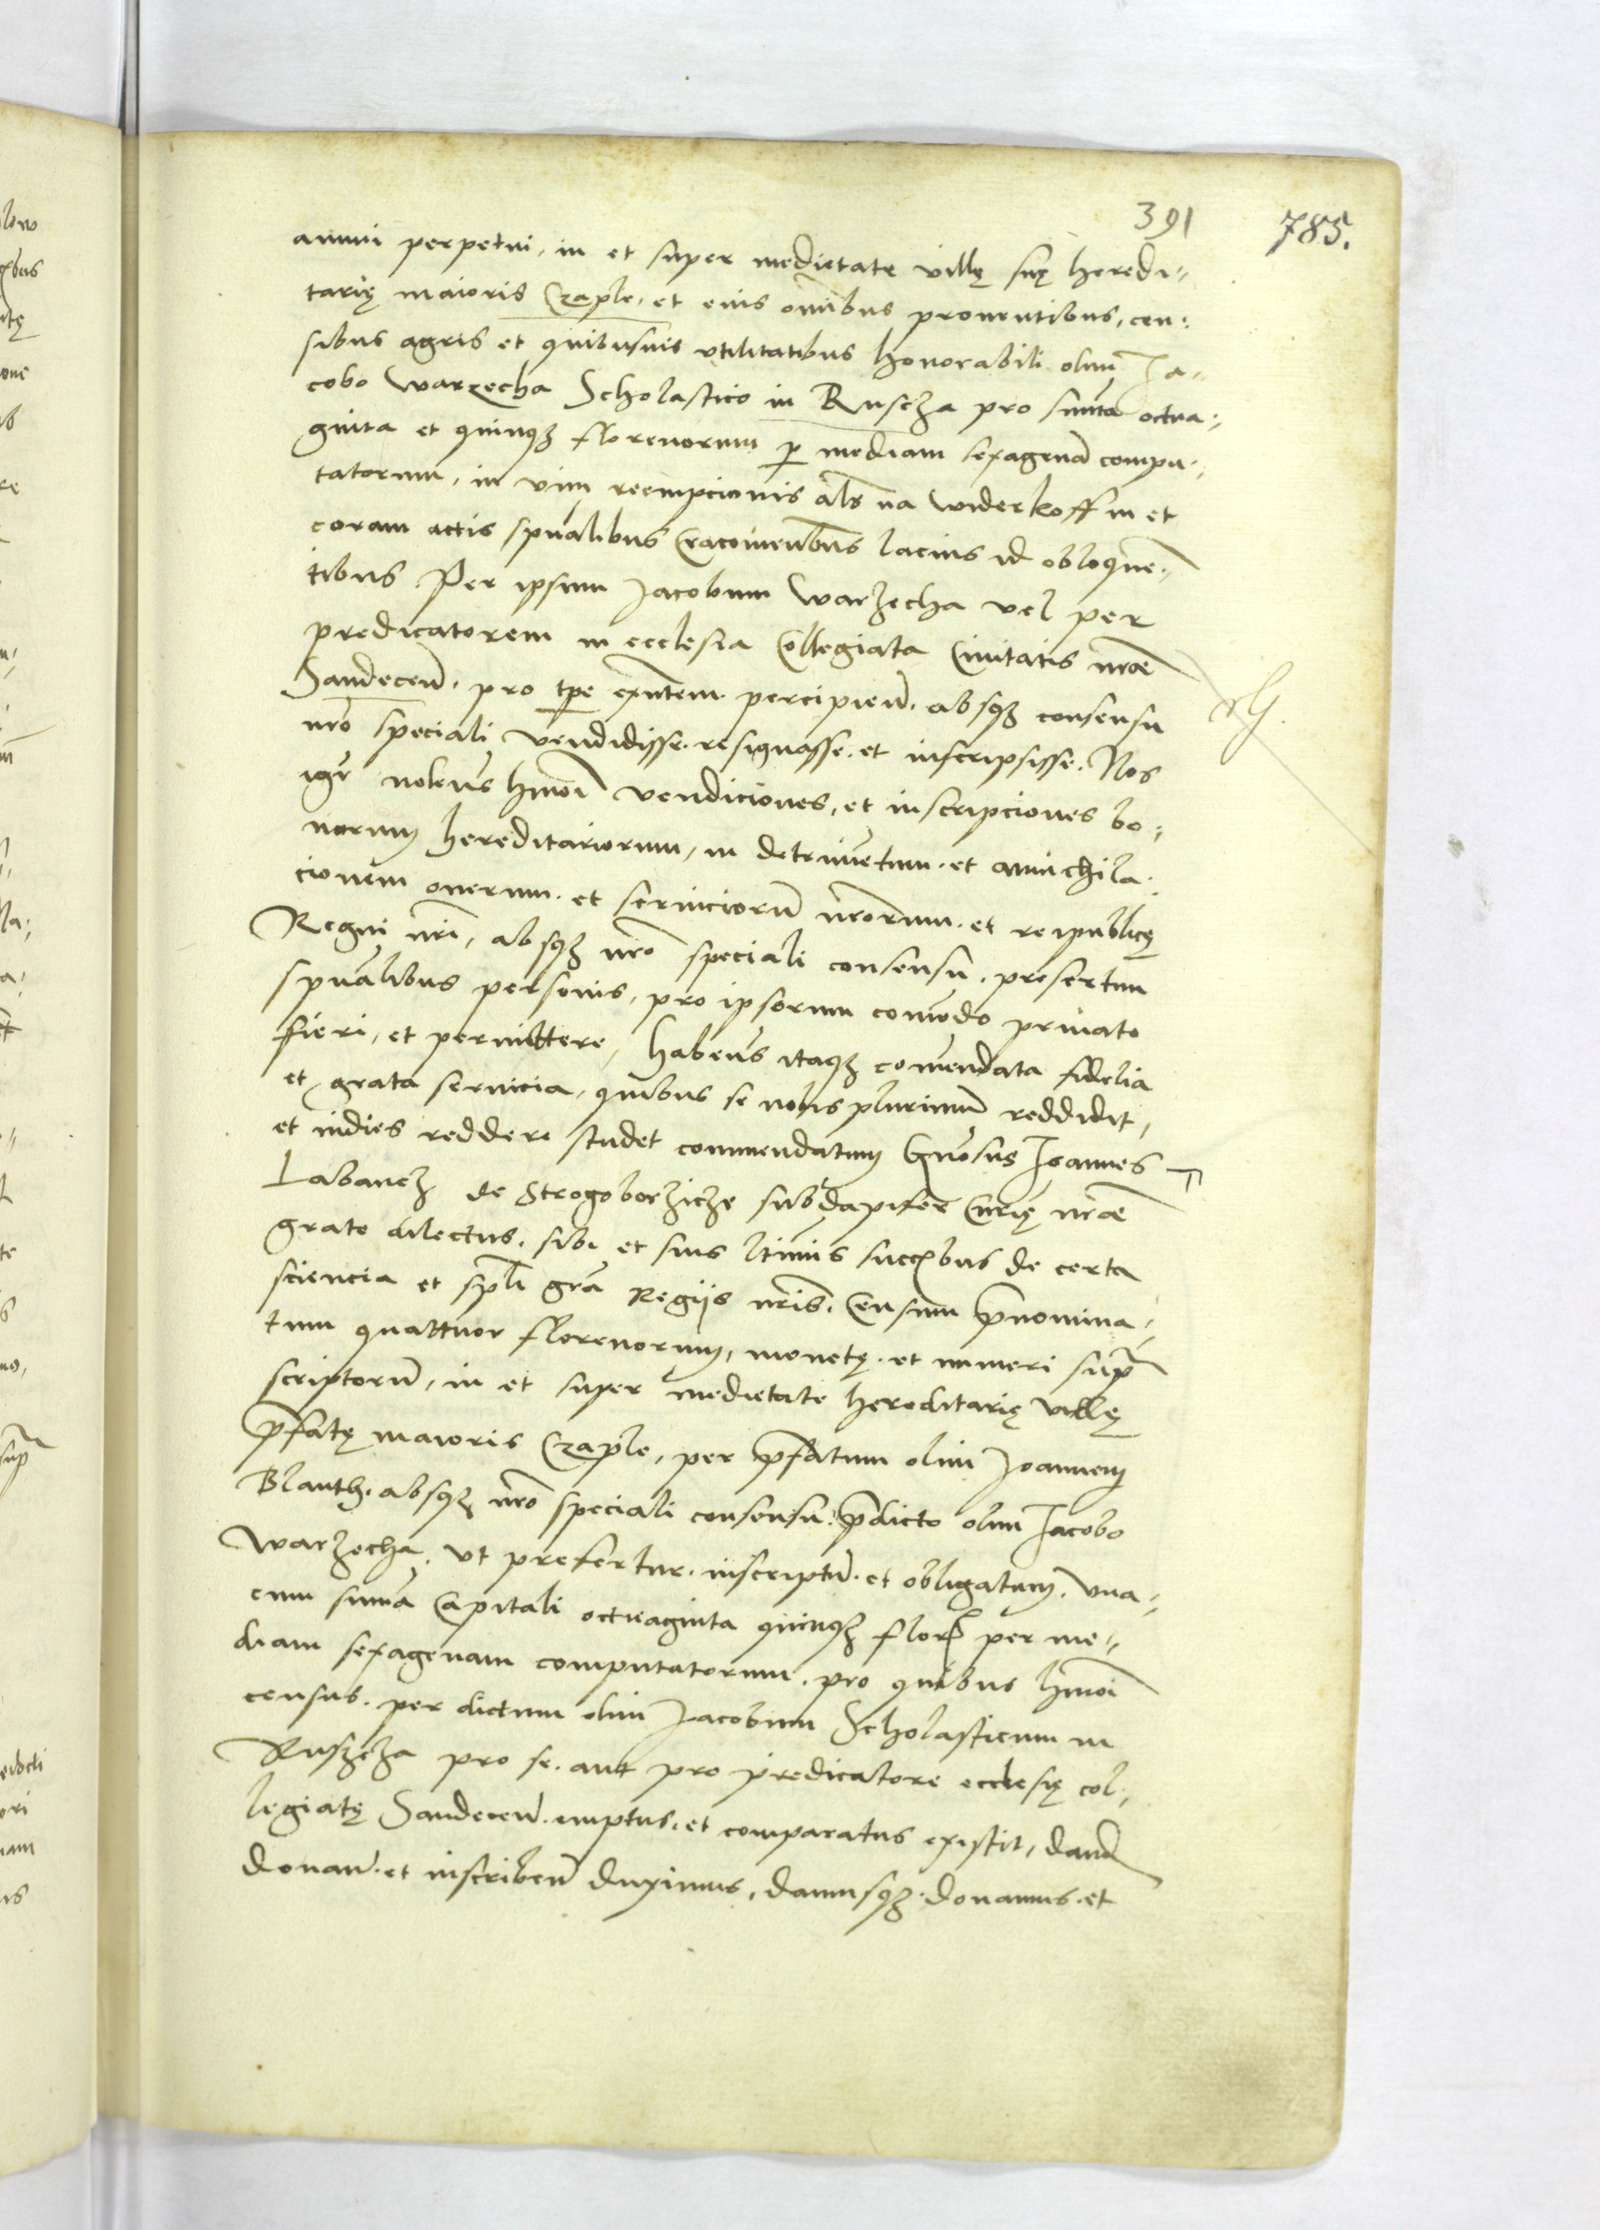 391 785.
annui perpetui, in et super medietate villę suę heredi-
tarię maioris Czaple, et eius omibus prouentibus, cen-
sibus agris et quibusuis vtilitatibus honorabili olim Ia-
cobo Warzecha Scholastico in Ruscza pro suma octua-
ginta et quinq3 florenorum p mediam sexagena compu-
tatorum, in vim reempcionis als na widerkoff in et
coram actis spualibus Cracouienbus lacius id obloquen-
tibus. Per ipsum Jacobum Warzecha vel per
predicatorem in ecclesia Collegiata Ciuitatis nrae
Sandecen. pro tpe exntem. percipien. absq3 consensu
nro speciali vendidisse. resignasse. et inscripsisse. Nos
igr nolens hmoi vendiciones, et inscripciones bo-
norum hereditariorum, in detrimentum. et annichila-
cionem onerum. et seruiciorum nrorum. et reipublicę
Regni nri, absq3 nro speciali consensu, presertim
spualibus personis, pro ipsorum comodo priuato
fieri, et permittere, habens itaq3 comendata fidelia
et grata seruicia, quibus se nobis plurimum reddidit,
et indies reddere studet commendatum Gnosus Ioannes
Labancz de Strogoborzicze subdapifer Curię nrae
grate dilectus, sibi et suis ltimis succbus de certa
sciencia et spli gra Regijs nris. Censum pnomina-
tum quattuor florenorum, monetę. et numeri supra
scriptorum, in et super medietate hereditarię villę
pfatę maioris Czaple, per pfatum olim Joannem
Blanth. absq3 nro speciali consensu. pdicto olim Iacobo
Warzecha, vt prefertur. inscriptum. et obligatum, vna-
cum suma Capitali octuaginta quinq3 flor per me-
diam sexagenam computatorum. pro quibus hmoi
census. per dictum olim Jacobum Scholasticum in
Ruszcza pro se. aut pro predicatore ecclesię col-
legiatę Sandecen. emptus, et comparatus existit, dand
donan. et inscriben duximus, damusq3. donamus. et